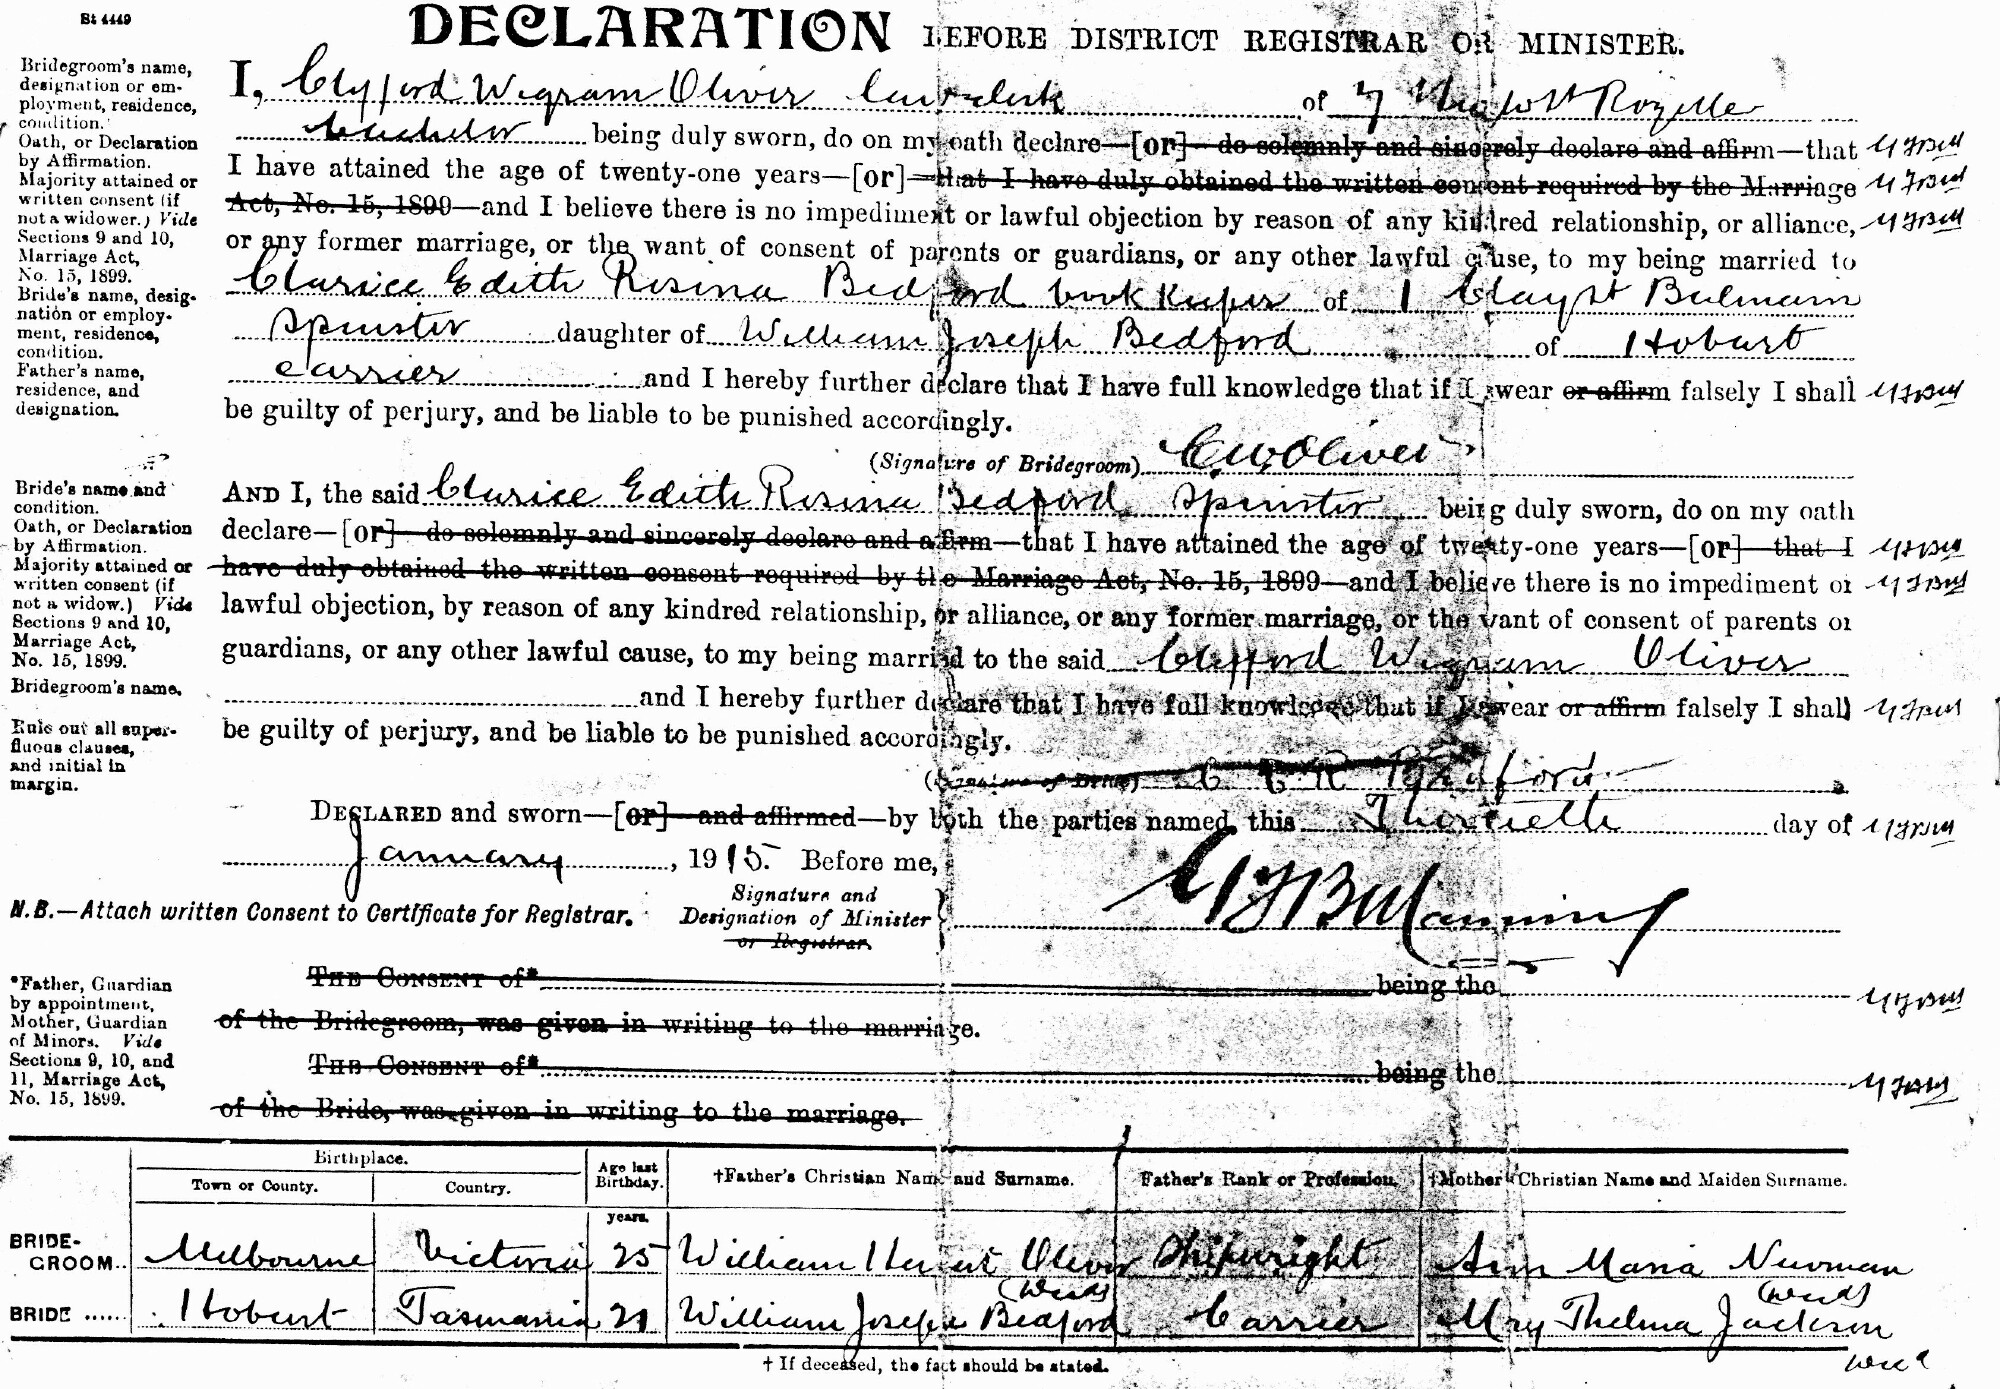 St 4449
DECLARATION BEFORE DISTRICT REGISTRAR OR MINISTER.
Bridegroom's name, designation or employment, residence, condition.
I, Clifford Wigram Oliver Law clerk of 7 St Rozelle
Bachelor being duly sworn, do on my oath declare—[or]—do solemnly and sincerely declare and affirm—that
Oath, or Declaration by Affirmation.
Majority attained or written consent (if not a widower.) Vide Sections 9 and 10, Marriage Act, No. 15, 1899.
I have attained the age of twenty-one years—[or]—that I have duly obtained the written consent required by the Marriage
Act, No. 15, 1899—and I believe there is no impediment or lawful objection by reason of any kindred relationship, or alliance,
or any former marriage, or the want of consent of parents or guardians, or any other lawful cause, to my being married to
Bride's name, designation or employment, residence, condition.
Clarice Edith Rosina Bedford book keeper of 1 Clay st Balmain
Spinster daughter of William Joseph Bedford of Hobart
Father's name, residence, and designation.
Carrier and I hereby further declare that I have full knowledge that if I swear or affirm falsely I shall
be guilty of perjury, and be liable to be punished accordingly.
(Signature of Bridegroom) C. W. Oliver
Bride's name and condition.
AND I, the said Clarice Edith Rosina Bedford Spinster being duly sworn, do on my oath
Oath, or Declaration by Affirmation.
declare—[or]—do solemnly and sincerely declare and affirm—that I have attained the age of twenty-one years—[or]—that I
Majority attained or written consent (if not a widow.) Vide Sections 9 and 10, Marriage Act, No. 15, 1899.
have duly obtained the written consent required by the Marriage Act, No. 15, 1899—and I believe there is no impediment or
lawful objection, by reason of any kindred relationship, or alliance, or any former marriage, or the want of consent of parents or
guardians, or any other lawful cause, to my being married to the said Clifford Wigram Oliver
Bridegroom's name.
and I hereby further declare that I have full knowledge that if I swear or affirm falsely I shall
be guilty of perjury, and be liable to be punished accordingly.
Rule out all superfluous clauses, and initial in margin.
(Signature of Bride) C E R Bedford
DECLARED and sworn—[or]—and affirmed—by both the parties named this Thirtieth day of
January, 1915. Before me,
Signature and Designation of Minister or Registrar. Manning
N.B.—Attach written Consent to Certificate for Registrar.
*Father, Guardian by appointment, Mother, Guardian of Minors. Vide Sections 9, 10, and 11, Marriage Act, No. 15, 1899.
THE CONSENT of* being the
of the Bridegroom, was given in writing to the marriage.
THE CONSENT of* being the
of the Bride, was given in writing to the marriage.
Birthplace.
Town or County. Country. Age last Birthday. †Father's Christian Name and Surname. Father's Rank or Profession. †Mother's Christian Name and Maiden Surname.
years.
BRIDEGROOM.. Melbourne Victoria 25 William Oliver Shipwright Ann Maria Newman
BRIDE ...... Hobart Tasmania 21 William Joseph Bedford Carrier Mary Thelma Jackson
† If deceased, the fact should be stated.